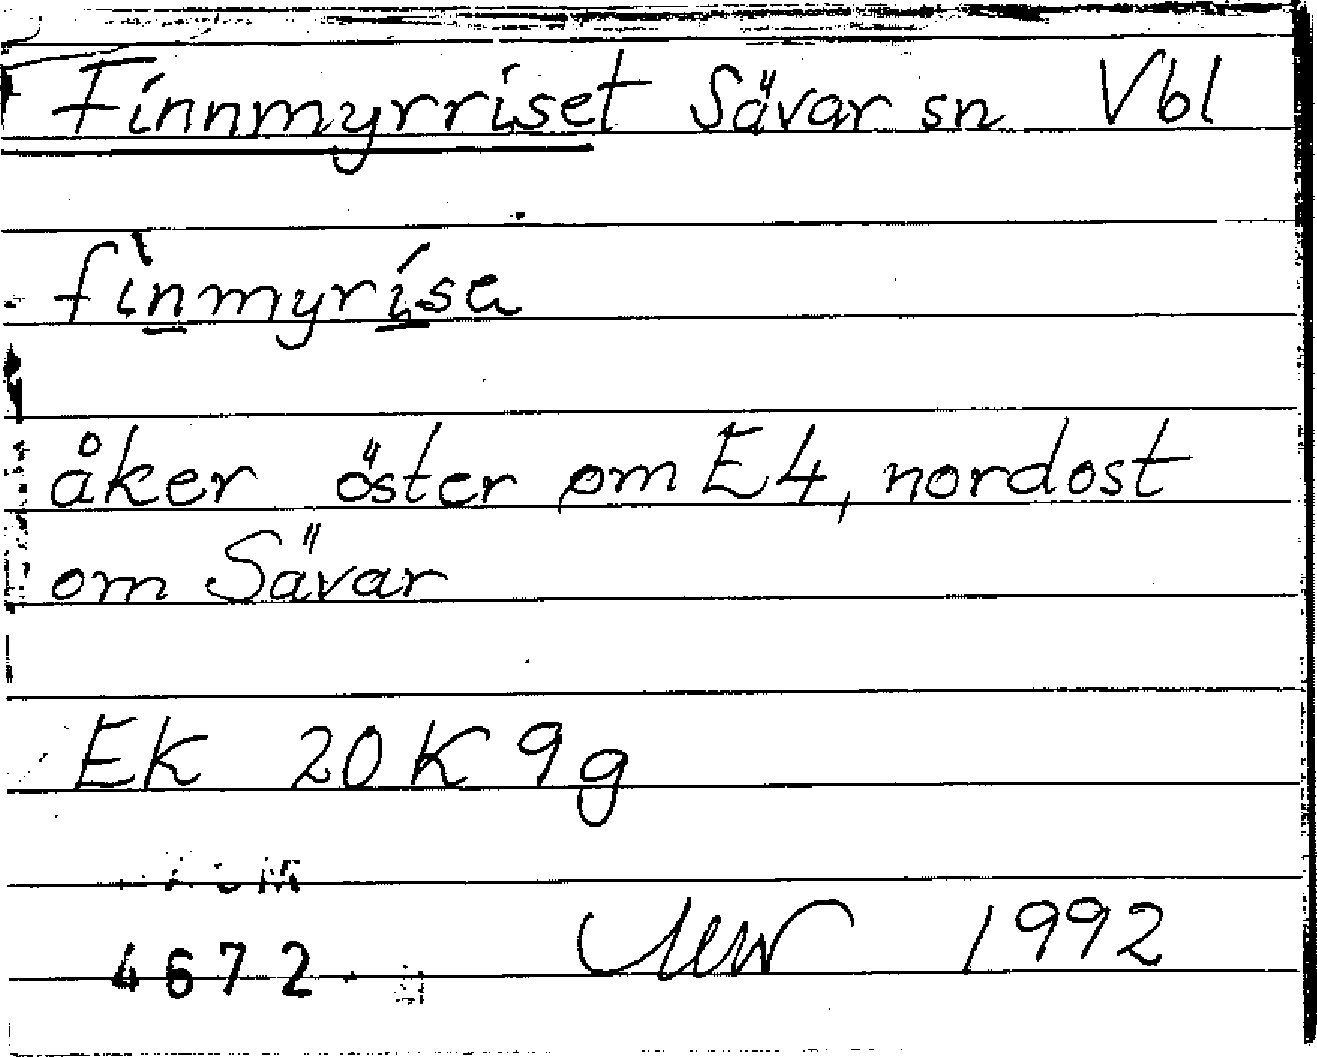 Finnmyrriset Sävar sn Vbl
fìnmyrísa
åker öster om E4, nordost
om Sävar
EK 20K 9g
4672
1992